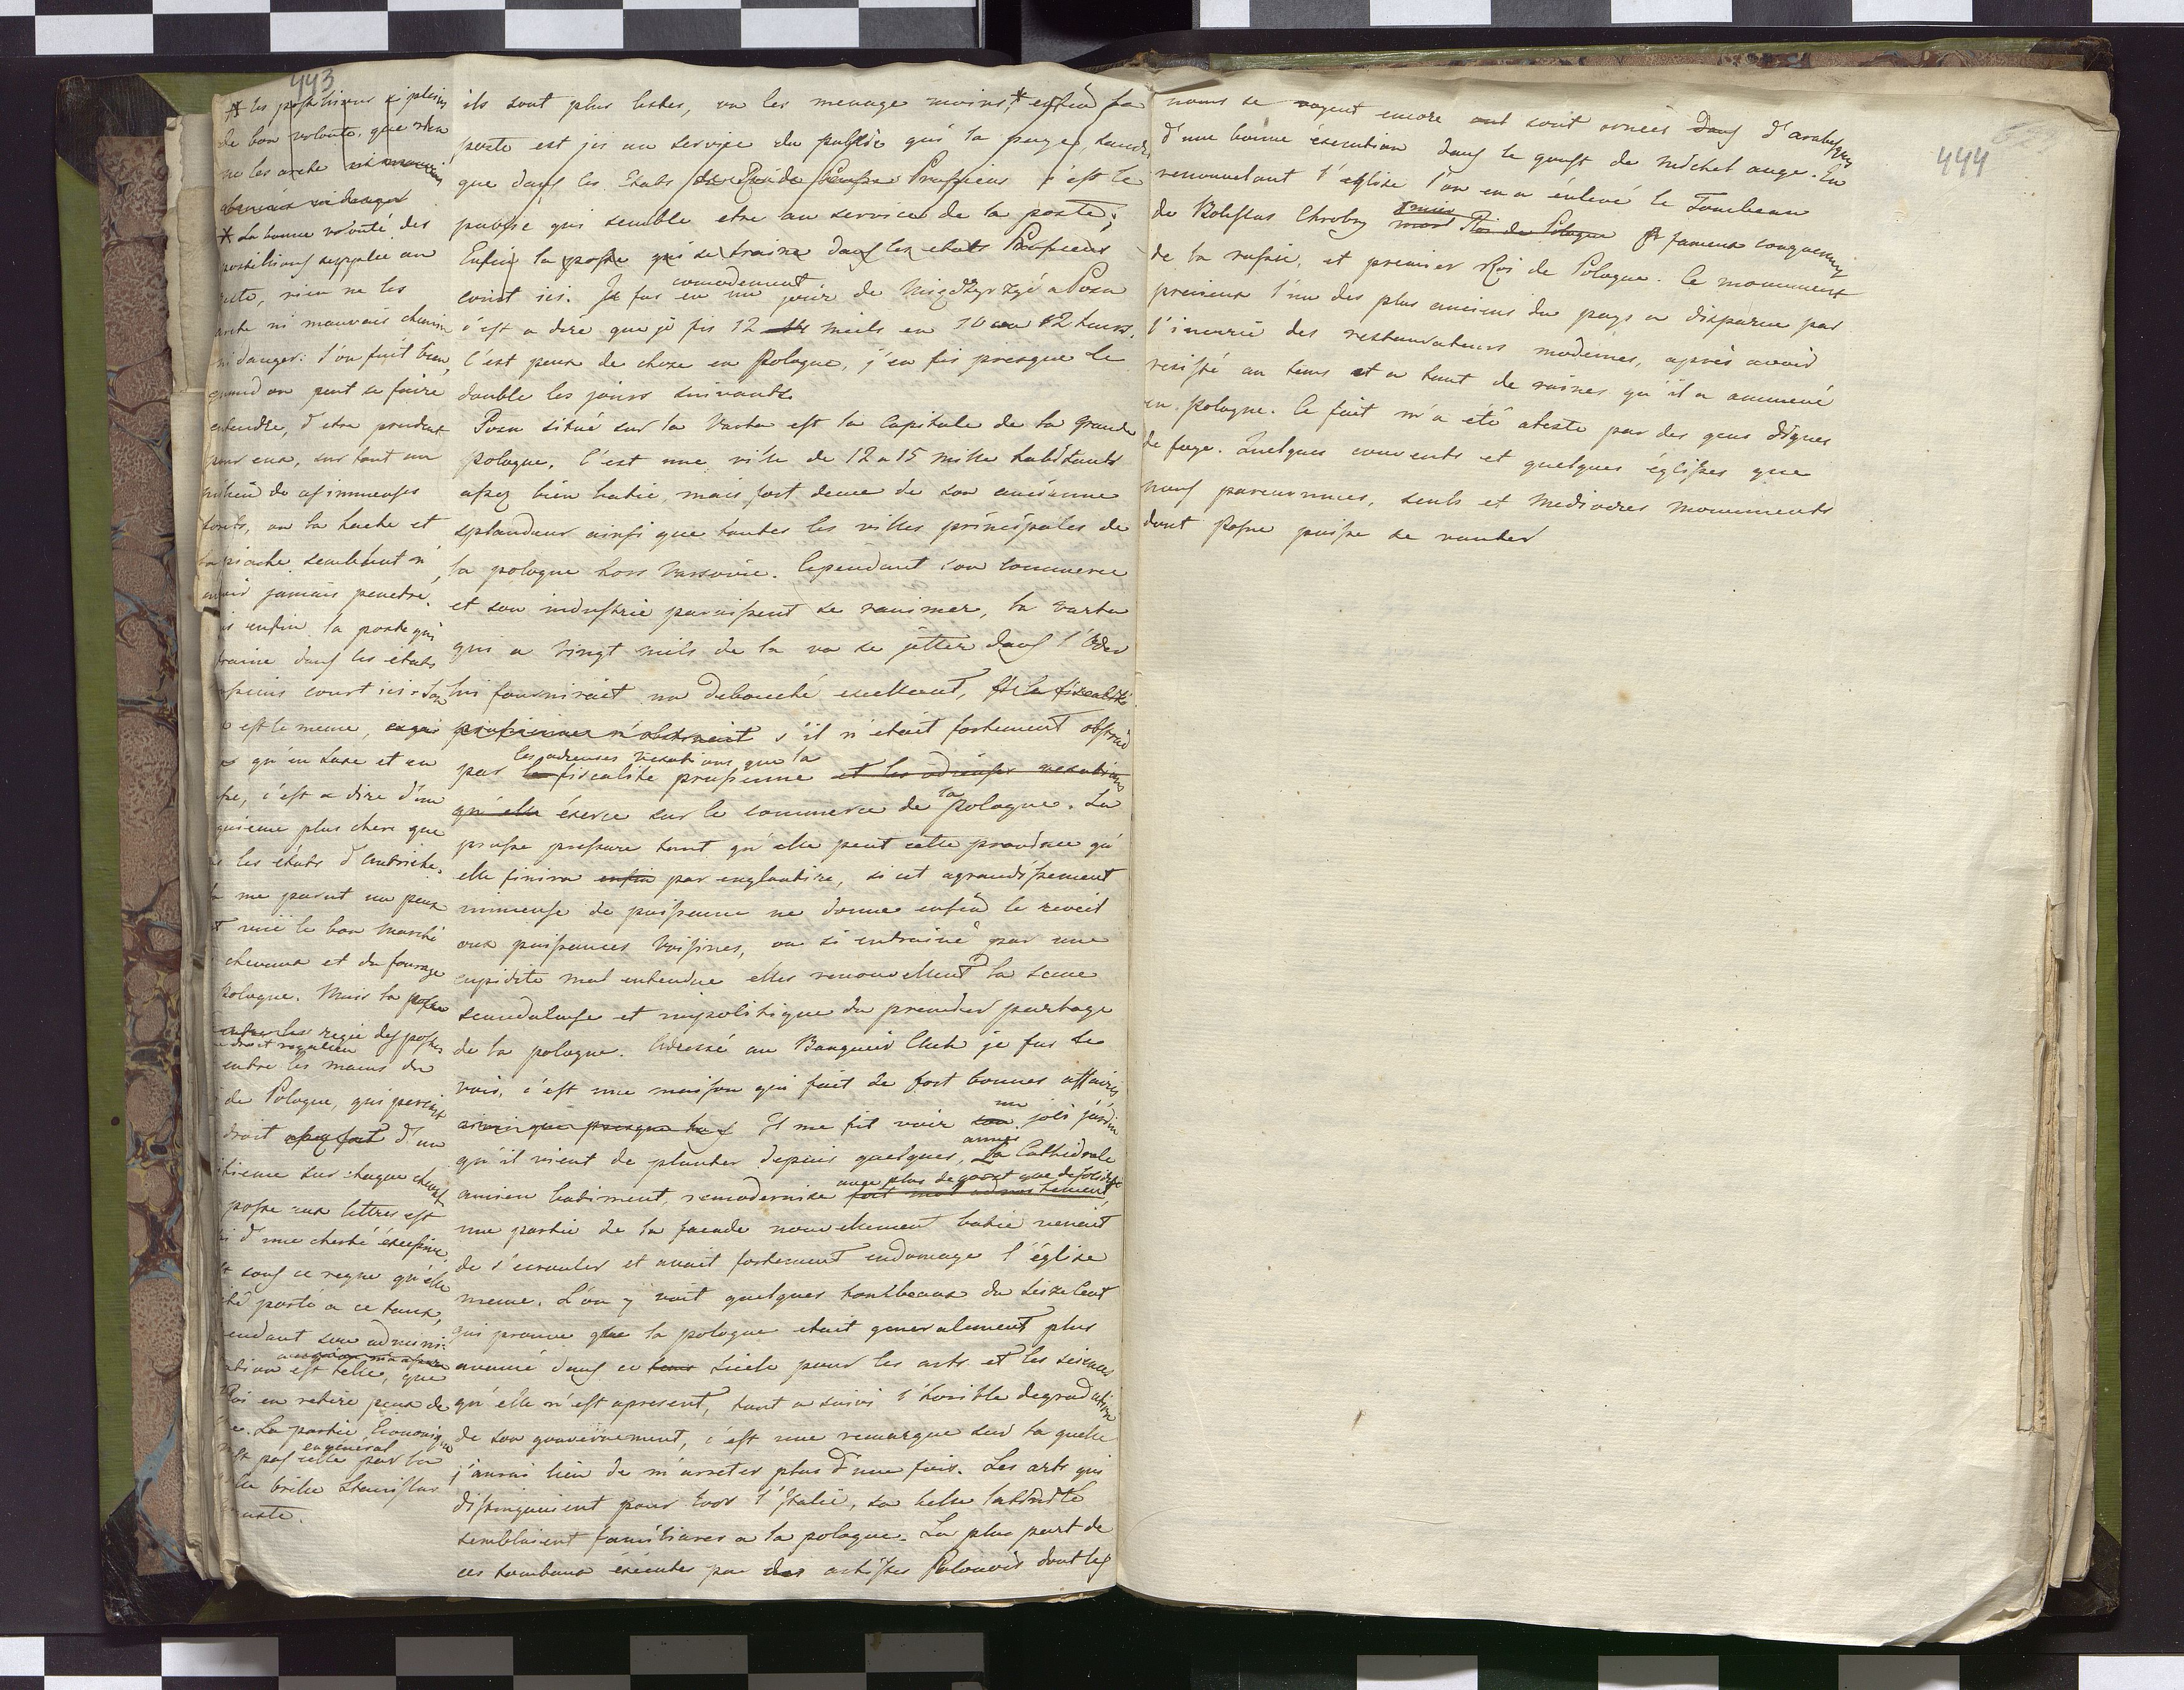 443
* les postillions si pleins
de bon volonté, que rien
ne les arrete ni mauvais
chemin ni danger
* La bonne volonté des
postillions supplée au
reste, rien ne les
arrete ni mauvais chemin
ni danger: l'on fait bien,
quand on peut se faire
entendre, d'etre prudent
pour eux, sur tout au
milieu de ces immenses
forets, ou la hache et
la pioche semblent n'
avoir jamais penetré.
enfin la poste qui
traine dans les etats
prussiens court ici. Son
est le meme,
qu'en Saxe et en
c'est a dire d'un
plus chere que
les etats d'Autriche.
me parut un peux
vüe le bon marché
chevaux et du fourage
Pologne. Mais la poste
regie des postes
droit regalien
entre les mains du
de Pologne, qui perçoit
droit assez fort d'un
sur chaque cheval
poste aux lettres est
d'une cherté éxcessive,
sous ce regne qu'elle
porté a ce taux,
pendant son admini-
est telle, que
Roi en retire peux de
La partie Economique
en général
pas celle par la
brille Stanislas
ils sont plus lestes, on les menage moins,* enfin la
poste est ici au service du public qui la paye, tandis
que dans les Etats Prussiens c'est le
public qui semble etre au service de la poste;
Enfin la poste qui se traine dans les etats Prussiens
comodement
court ici. Je fus en un jour de Międzyrzyć a Posn
c'est a dire que je fis 12 mils en 10 ou 12 heures.
C'est peux de chose en Pologne, j'en fis presque le
double les jours suivants.
Posn situé sur la Varta est la Capitale de la grande
pologne. C'est une ville de 12 a 15 mille habitants
assez bien batie, mais fort decue de son ancienne
splendeur ainsi que toutes les villes principales de
la pologne hors Varsovie. Cependant son commerce
et son industrie paroissent se ranimer, la varta
qui a vingt mils de la va se jetter dans l'Oder
lui fournirait un debouché excellent, si la fiscalité
prussienne n'obstruait s'il n'étoit fortement obstrué
les odieuses vexations que la
par la fiscalité prussienne et les odieuses vexations
qu'elle éxerce sur le commerce de la pologne. La
prusse pressure tant qu'elle peut cette province qu'
elle finira enfin par engloutire, si cet agrandissement
immense de puissance ne donne enfin le reveil
aux puissances voisines, ou si entrainé par une
cupidité mal entendue elles renouvellent la scene
scandaleuse et impolitique du premier partage
de la pologne. Adressé au Banquier Klug je fus le
voir, c'est une maison qui fait de fort bonnes affaires
un
Il me fit voir son joli jardin
années
qu'il vient de planter depuis quelques, La Cathédrale
avec plus de gout que de solidité
ancien batiment, remodernise fort mal adroitement,
une partie de la facade nouvellement batie venait
de s'ecrouler et avait fortement endomagé l'église
meme. L'on y voit quelques tombeaux du seizieme
qui prouve que la pologne etait generalement plus
avancé dans ce tems siecle pour les arts et les sciences
qu'elle n'est apresent, tant a suivi l'horrible degradation
de son gouvernement, c'est une remarque sur la quelle
j'aurai lieu de m'arreter plus d'une fois. Les arts qui
distinguaient pour lors l'Italie, sa belle latinité
semblaient familiaires a la pologne. La plus part de
ces tombeaux éxécutés par des artistes Polonois dont les
444
noms se voyent encore sont ornées dans d'arabesques
d'une bonne éxecution dans le goust de Michel ange. En
renouvelant l'église l'on en a énlevé le Tombeau
de Boleslas Chrobry Roi de Pologne fameux conquerant
de la russie, et premier Roi de Pologne. Ce monument
precieux l'un des plus anciens du pays a disparue par
l'incurie des restaurateurs modernes, après avoir
resisté au tems et a tant de ruines qu'il a ammené
en Pologne. Ce fait m'a été atesté par des gens dignes
de foye. Quelques couvents et quelques églises que
nous parcourumes, seuls et mediocres monuments
dont Posne puisse se vanter